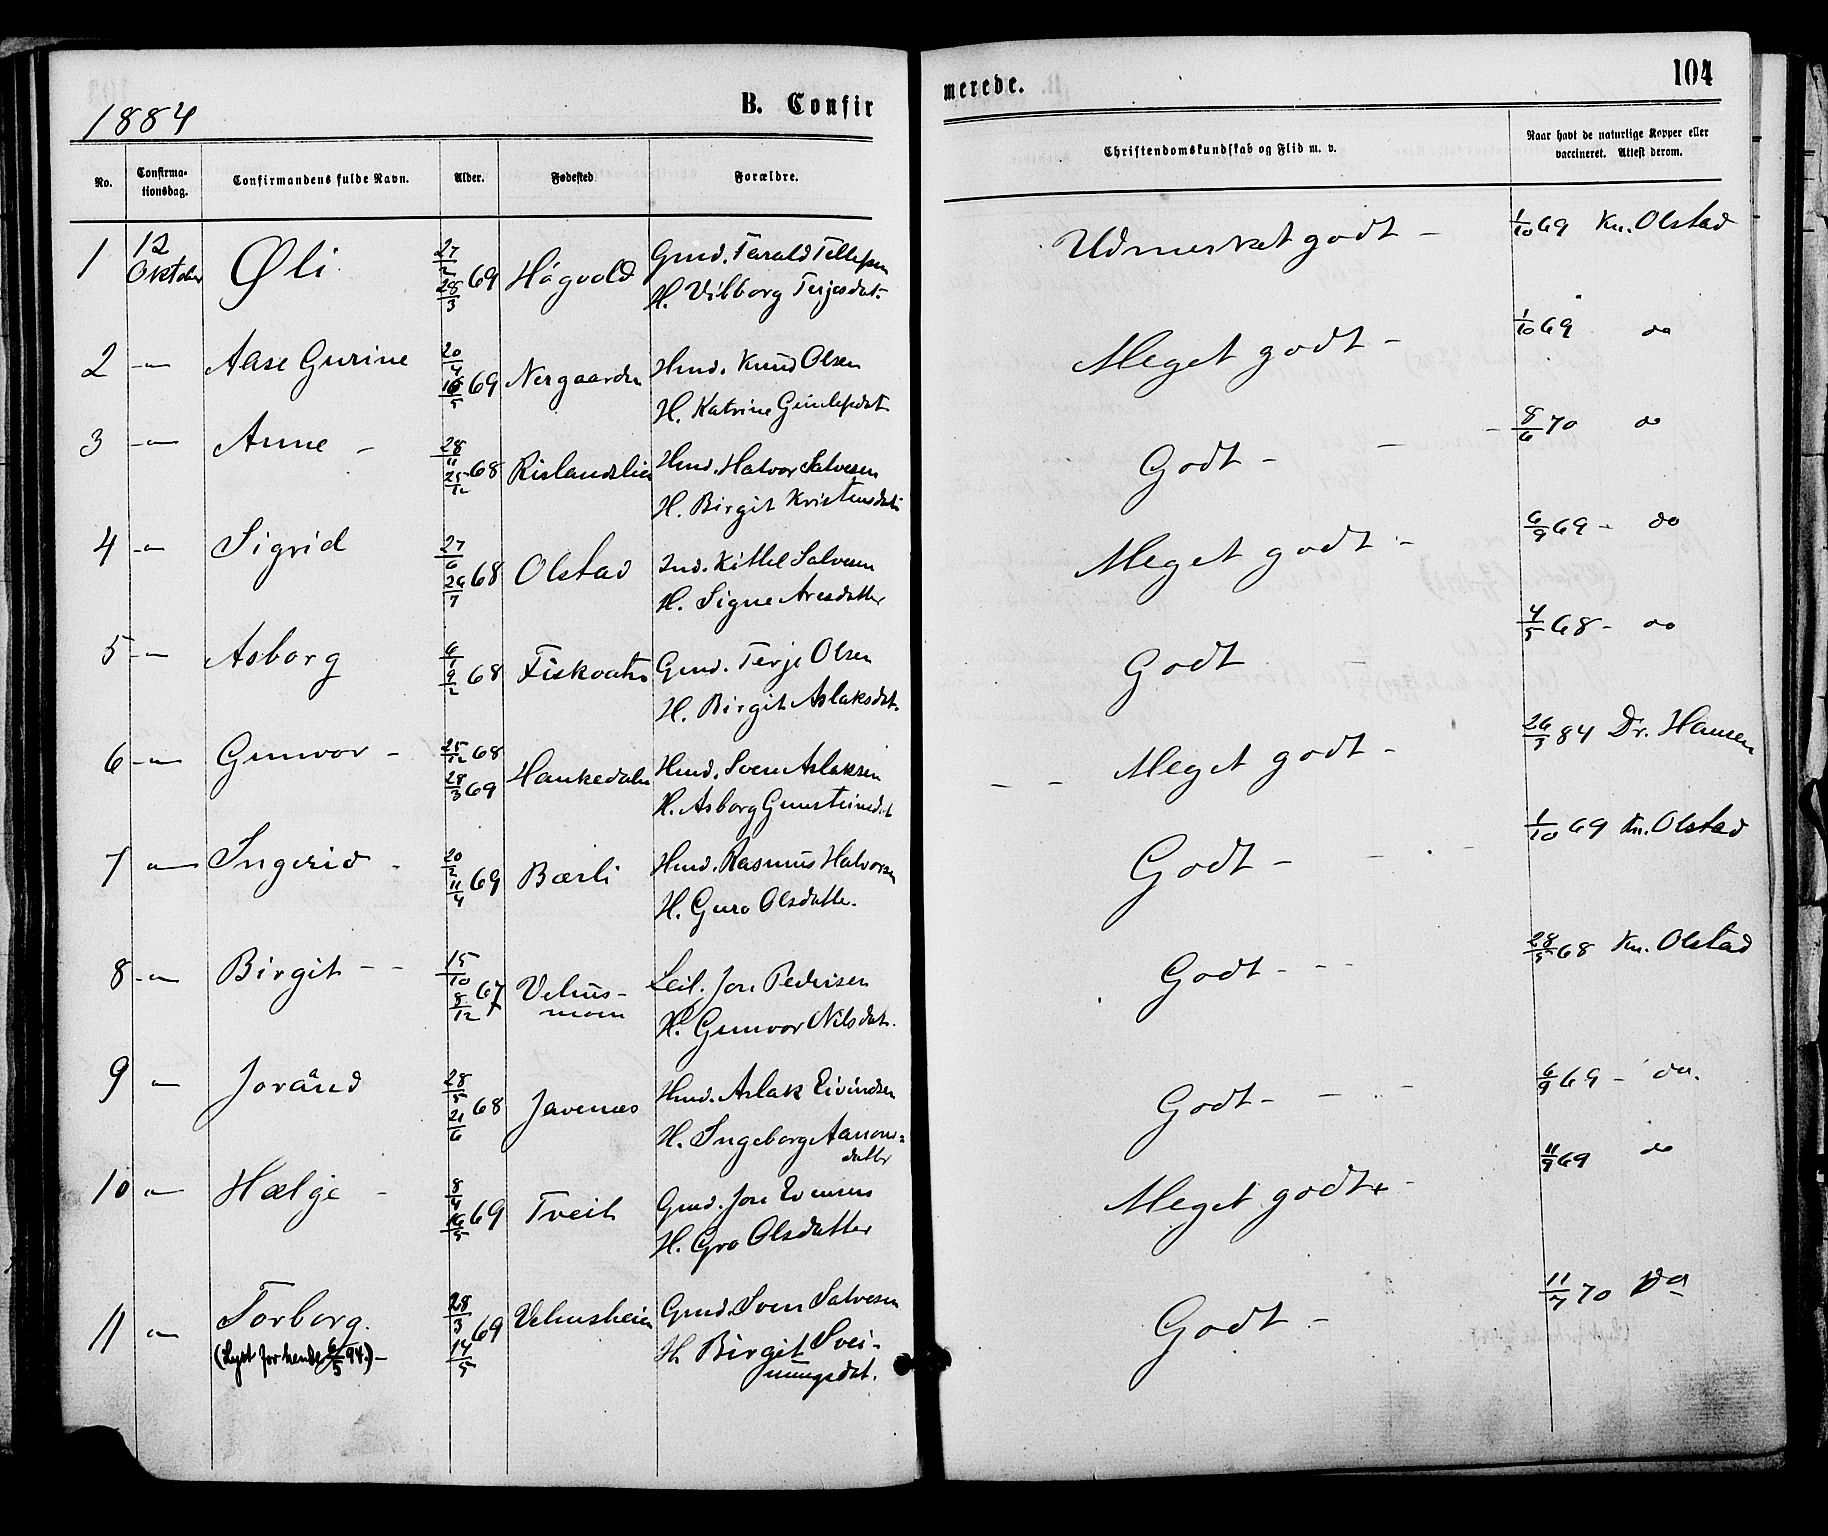 1884
B. Confir
merede.
104
No.
Confirma-
tionsdag.
Confirmandens fulde Navn.
Alder.
Fødested.
Forældre.
Christendomskundskab og Flid m. v.
Naar havt de naturlige Kopper eller
vaccineret. Attest derom.
1 12 Oktober Øli 69 Högvold Gmd. Tarald Tellefsen
H. Vilborg Terjesdat.
Udmerket godt - 1/10 69 Kn. Olstad
2 -"- Aase Gurine 20/4 69 Nergaarden Hmd. Knud Olsen
H. Katrine Gunlefsdat.
Meget godt - 1/10 69 do
3 -"- Anne - 28/11 25/12 68 Rislandslien Hmd. Halvor Salvesen
H. Birgit Kristensdat.
Godt - 8/6 70 do
4 -"- Sigrid 27/6 26/7 68 Olstad Ind. Kittel Salvesen
H. Signe Aresdatter
Meget godt - 6/9 69 - do
5 -"- Asborg 6/1 9/2 68 Fiskvatn Gmd. Terje Olsen
H. Birgit Aslaksdat.
Godt 4/5 68 - do
6 -"- Gunvor - 25/12 68
28/3 69 Haukedalen Hmd. Sven Aslaksen
H. Asborg Gunsteinsd.t
Meget godt - 84 Dr. Hansen
7 " Ingerid - 20/2 11/4 69 Bærli Hmd. Rasmus Halvorsen
H. Guro Olsdatte.
Godt - 1/10 69 Kn. Olstad
8 -"- Birgit - - 15/10 8/12 67 Vehus-
moen Leil. Jon Pedersen
H. Gunvor Nilsdat.
Godt - - - 28/5 68 Kn. Olstad
9 " Joränd 28/5 21/6 68 Javenæs Hmd. Aslak Eivindsen
H. Ingeborg Aanons=
datter
Godt - - 6/9 69 - do.
10 " Hælge - 8/4 69 Tveit Gmd. Jon Evensen
H. Gro Olsdatter
Meget godt 11/9 69 do
11 " Torborg.
(Lyst for hende 6/5 94.) -
28/3 14/5 69 Vehusheien Gmd. Sven Salvesen
H. Birgit Svei-
nungsdat.
Godt - 11/7 70 Do